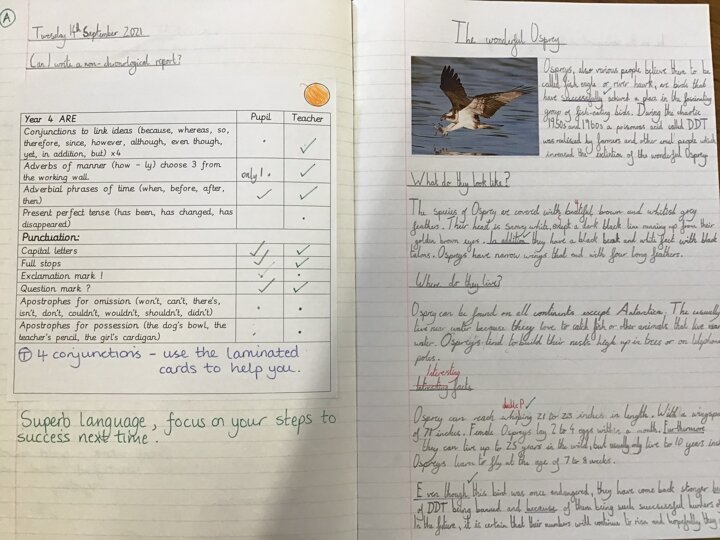 A
Tuesday 14th September 2021
Can I write a non-chronological report?
Year 4 ARE Pupil Teacher
Conjunctions to link ideas (because, whereas, so,
therefore, since, however, although, even though,
yet, in addition, but) x4
Adverbs of manner (how - ly) choose 3 from
the working wall. only 1
Adverbial phrases of time (when, before, after,
then)
Present perfect tense (has been, has changed, has
disappeared)
Punctuation:
Capital letters
Full stops
Exclamation mark !
Question mark ?
Apostrophes for omission (won't, can't, there's,
isn't, don't, couldn't, wouldn't, shouldn't, didn't)
Apostrophes for possession (the dog's bowl, the
teacher's pencil, the girl's cardigan)
T 4 conjunctions - use the laminated
cards to help you.
Superb language, focus on your steps to
success next time.
The wonderful Osprey
Ospreys, also various people believe them to be
called fish eagle or river hawk, are birds that
have successfully achived a place in the fascinating
group of fish-eating birds. During the chaotic
1950s and 1960s a poisonous acid called DDT
was realised by farmers and other cruel people which
increased the extinction of the wonderful Osprey
What do they look like?
The species of Osprey are covered with beatiful brown and whitish grey
feathers. Their head is snowy white, exept a dark black line running up from their
golden brown eyes. In addition they have a black beak and white feet with black
talons. Ospreys have narrow wings that end with four long feathers.
Where do they live?
Osprey can be found on all continents except Antarctica. The usually
live near water because they love to catch fish or other animals that live near
water. Ospreys tend to build their nests high up in trees or on telephone
poles.
Interesting
Intresting facts
double P
Osprey can reach whiping 21 to 23 inches in length. With a wingspan
of 71 inches. Female Ospreys lay 2 to 4 eggs within a month. Furthermore
they can live up to 25 years in the wild, but usually only live to 10 years
Ospreys learn to fly at the age of 7 to 8 weeks.
Even though this bird was once endangered, they have come back stonger
of DDT being banned and because of them being such successful hunters of
In the future, it is certain that their numbers will continue to rise and hopefully they